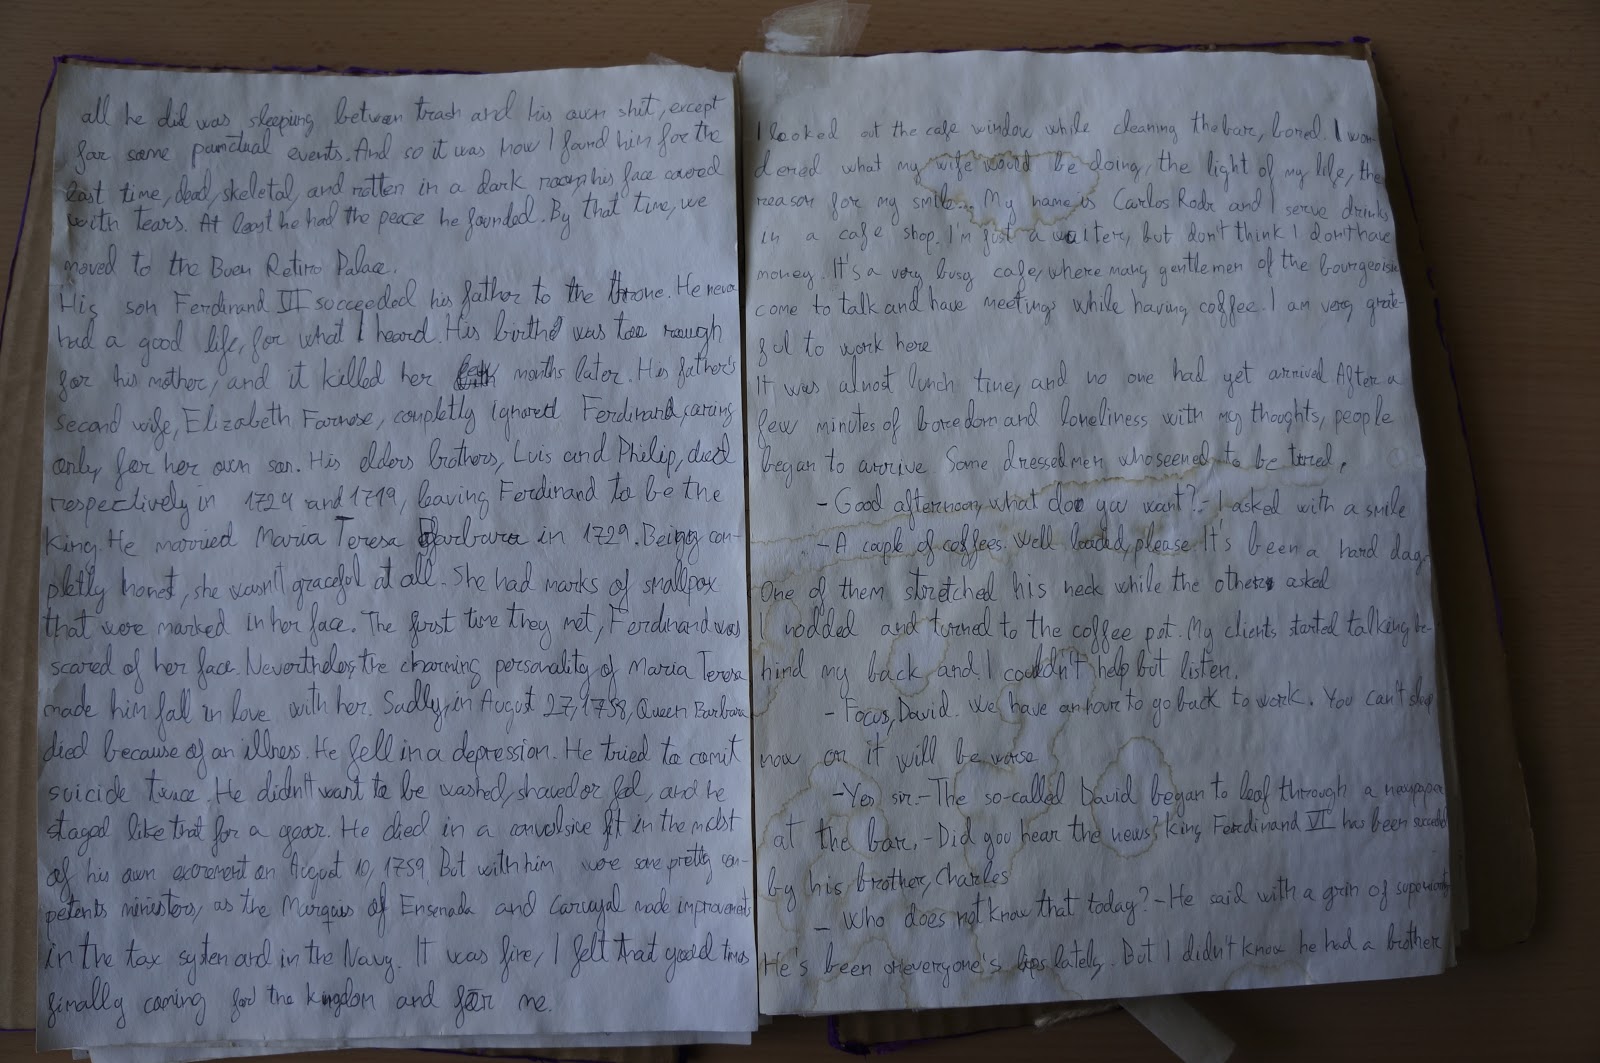 all he did was sleeping between trash and his own shit, except
for some punctual events. And so it was how I found him for the
last time, dead, skeletal, and rotten in a dark room, his face covered
with tears. At least he had the peace he founded. By that time, we
moved to the Buen Retiro Palace.
His son Ferdinand VI succeeded his father to the throne. He never
had a good life, for what I heard. His birth was too rough
for his mother, and it killed her months later. His father's
second wife, Elizabeth Farnese, completly ignored Ferdinand, caring
only for her own son. His elders brothers, Luis and Philip, died
respectively in 1724 and 1719, leaving Ferdinand to be the
King. He married Maria Teresa Barbara in 1729. Being con-
pletly honest, she wasn't graceful at all. She had marks of smallpox
that were marked in her face. The first time they met, Ferdinand was
scared of her face. Nevertheless, the charming personality of Maria Teresa
made him fall in love with her. Sadly, in August 27, 1758, Queen Barbara
died because of an illness. He fell in a depression. He tried to comit
suicide twice. He didn't want to be washed, shaved or fed, and he
stayed like that for a year. He died in a convulsive fit in the midst
of his own excrement on August 10, 1759. But with him were some pretty con-
petents ministers, as the Marquis of Ensenada and Carvajal made improvements
in the tax system and in the Navy. It was fine, I felt that good times
finally coming for the kingdom and for me.
I looked out the cafe window while cleaning the bar, bored. I won-
dered what my wife would be doing, the light of my life, the
reason for my smile... My name is Carlos Rodr and I serve drinks
in a cafe shop. I'm just a waiter, but don't think I don't have
money. It's a very busy cafe, where many gentlemen of the bourgeoisie
come to talk and have meetings while having coffee. I am very grate-
ful to work here
It was almost lunch time, and no one had yet arrived After a
few minutes of boredom and loneliness with my thoughts, people
began to arrive. Some dressed men who seemed to be tired.
- Good afternoon, what do you want? - I asked with a smile
- A couple of coffees. Well loaded, please. It's been a hard day.
One of them stretched his neck while the other asked
I nodded and turned to the coffee pot. My clients started talking be-
hind my back and I couldn't help but listen.
- Focus, David. We have an hour to go back to work. You can't sleep
now or it will be worse
- Yes, sir. - The so-called David began to leaf through a newspaper
at the bar. - Did you hear the news? King Ferdinand VI has been succeeded
by his brother, Charles
- Who does not know that today? - He said with a grin of superiority
He's been on everyone's lips lately. But I didn't know he had a brother